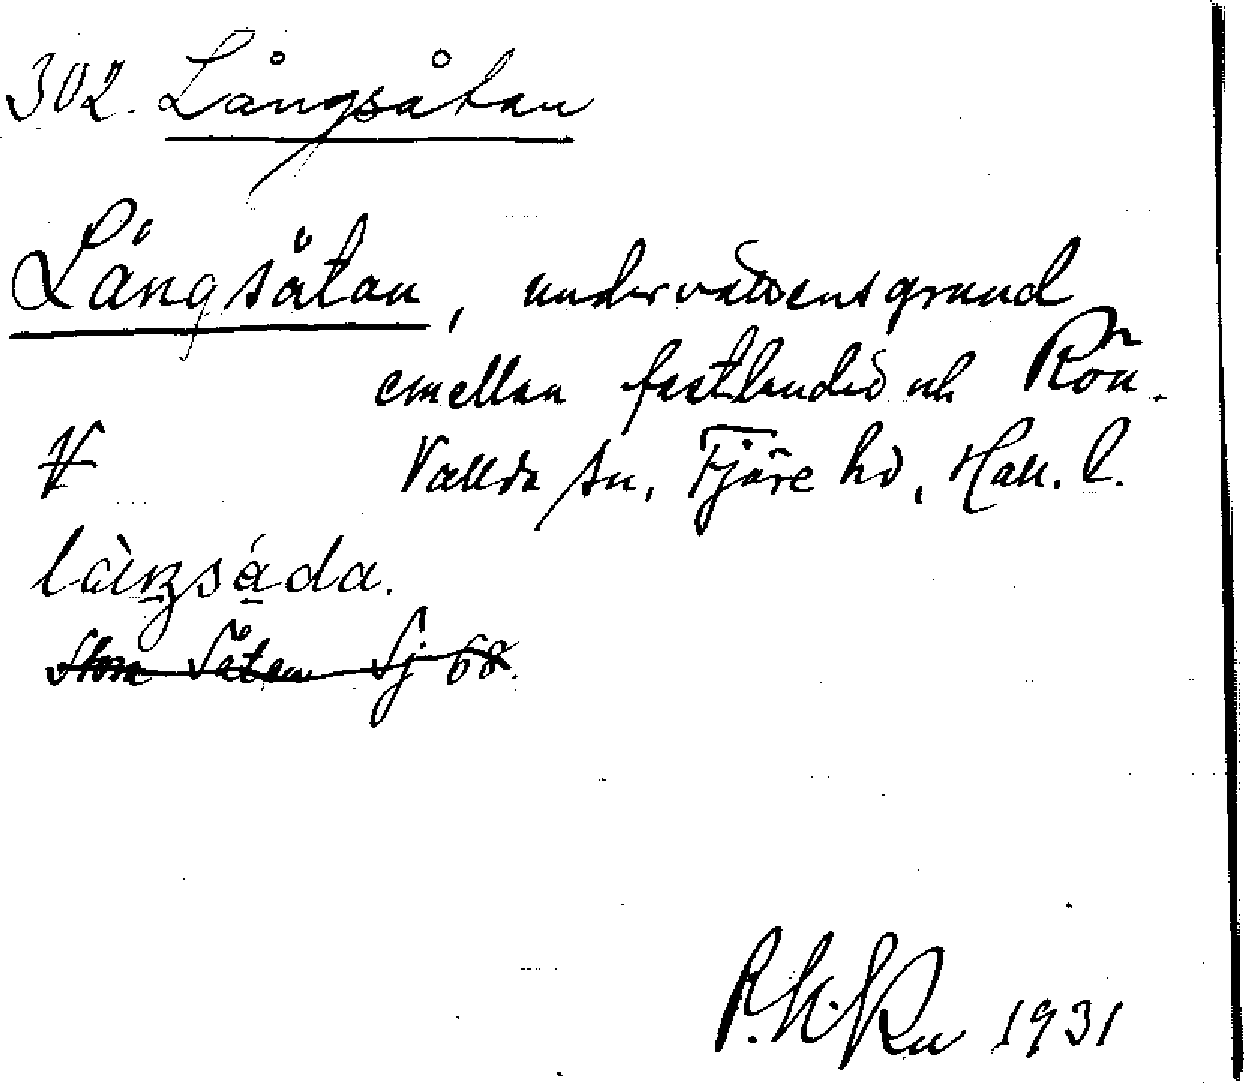 302. Långsåtan
Långsåtan, undervattensgrund
emellan fastlandet och Rön.
Vallda sn, Fjäre hd, Hall. l.
Stora Såten Sj 68.
1931